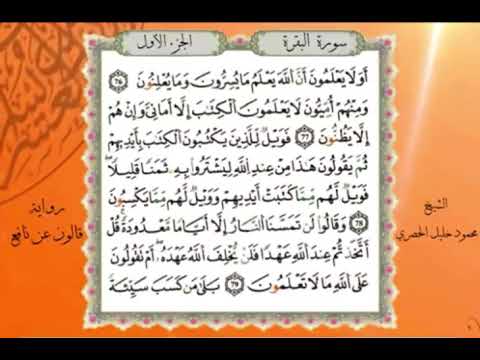 سورة البقرة
الجزء الأول
أَوَلَا يَعْلَمُونَ أَنَّ اَللَّهَ يَعْلَمُ مَا يُسِرُّونَ وَمَا يُعْلِنُونَ ٧٦
وَمِنْهُمْ أُمِّيُّونَ لَا يَعْلَمُونَ اَلْكِتَٰبَ إِلَّا أَمَانِيَّ وَإِنْ هُمْ
إِلَّا يَظُنُّونَ ٧٧ فَوَيْلٌ لِّلَّذِينَ يَكْتُبُونَ اَلْكِتَٰبَ بِأَيْدِيهِمْ
ثُمَّ يَقُولُونَ هَٰذَا مِنْ عِندِ اِللَّهِ لِيَشْتَرُوا بِهِ ثَمَنًا قَلِيلًا
فَوَيْلٌ لَّهُم مِّمَّا كَتَبَتْ أَيْدِيهِمْ وَوَيْلٌ لَّهُم مِّمَّا يَكْسِبُونَ
٧٨ وَقَالُوا لَن تَمَسَّنَا اَلنَّارُ إِلَّا أَيَّامًا مَّعْدُودَةً قُلْ
أَتَّخَذتُّمْ عِندَ اَللَّهِ عَهْدًا فَلَنْ يُّخْلِفَ اَللَّهُ عَهْدَهُ أَمْ تَقُولُونَ
عَلَى اَللَّهِ مَا لَا تَعْلَمُونَ ٧٩ بَلَىٰ مَن كَسَبَ سَيِّئَةً
الشيخ
محمود خليل الحصري
رواية
قالون عن نافع